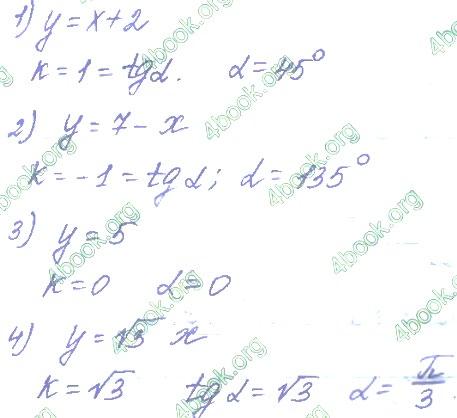 1) y = x + 2
k = 1 = tg α. α = 45°
2) y = 7 - x
k = -1 = tg α; α = 135°
3) y = 5
k = 0 α = 0
4) y = √3 x
k = √3 tg α = √3 α = π/3.
4book.org
4book.org
4book.org
4book.org
4book.org
4book.org
4book.org
4book.org
4book.org
4book.org
4book.org